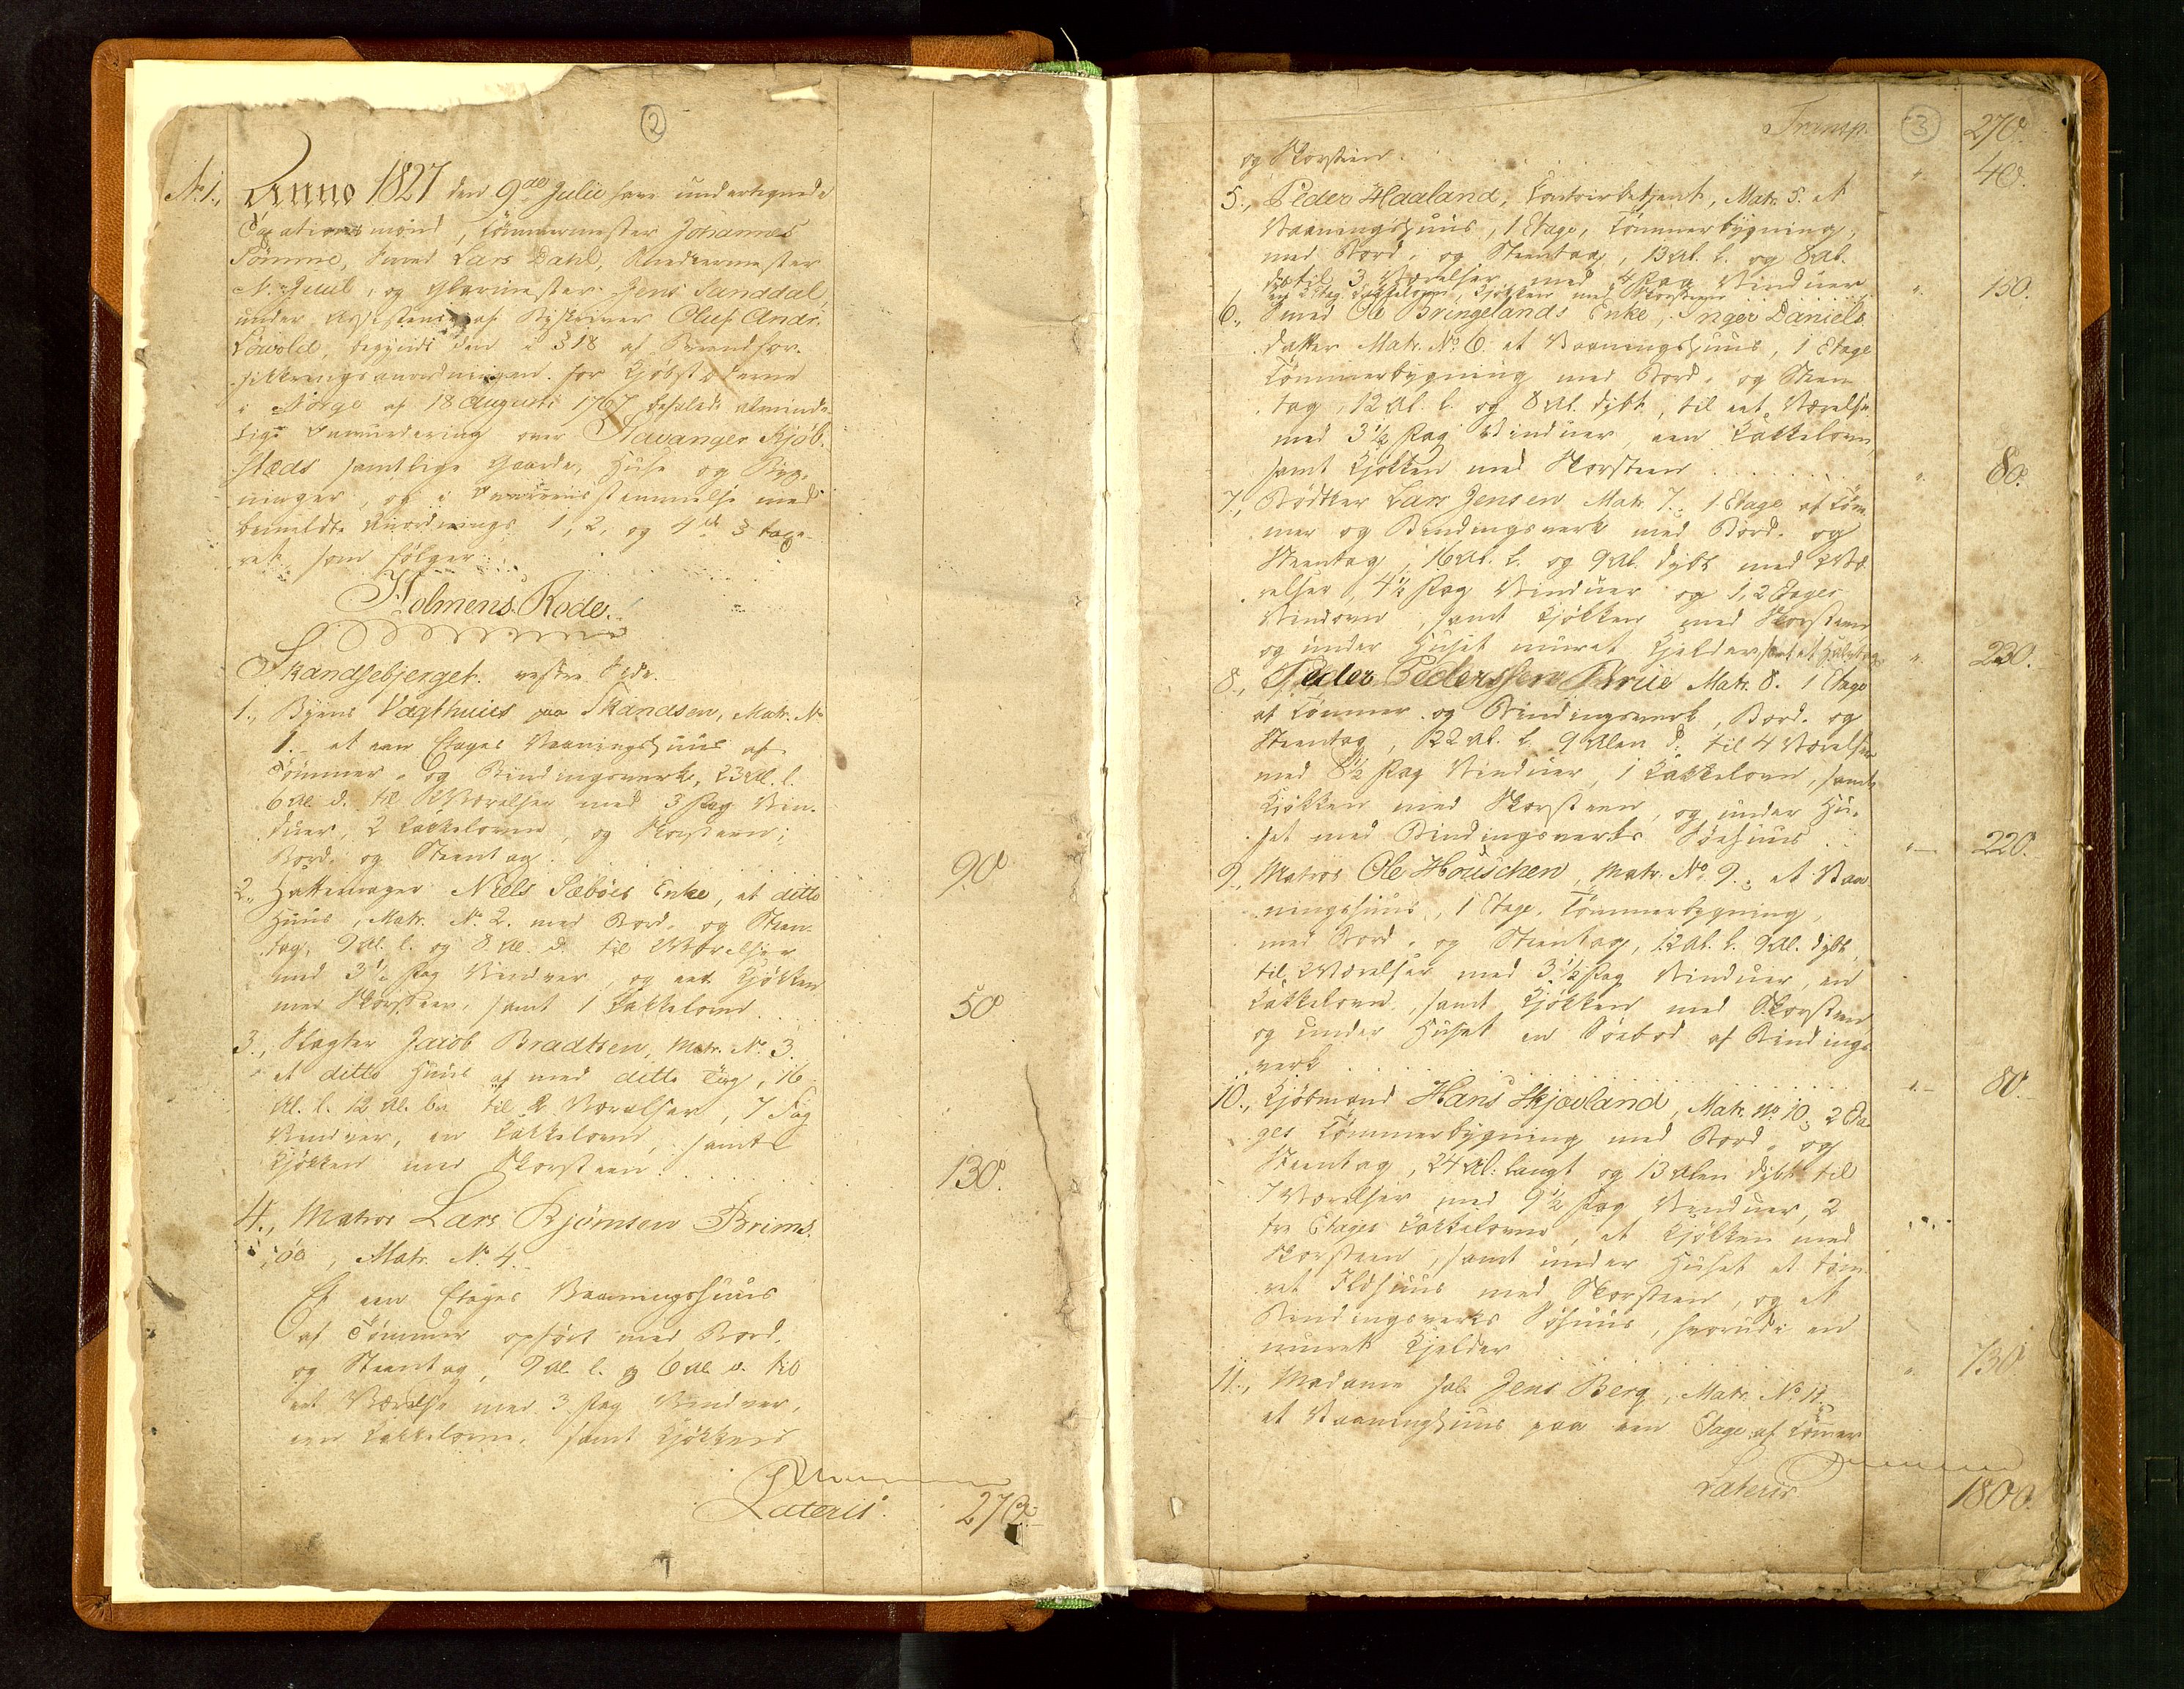 2
No 1., Anno 1827 den 9de Julii have undertegnede
Taxationsmænd, Tømmermester Johannes
Tømme, Smed Lars Dahl, Snedkermester
N. Juul, og Glarmester Jens Sanddal,
under Assistence af Byskriver Oluf Andr.
Löwold, begyndt den i § 18 af Brandfor-
sikkringsanordningen for Kjøbstæderne
i Norge af 18 Augusti 1767 befalede alminde-
lige Omvurdering over Stavanger Kjøb-
stæds samtlige Gaarde, Huse og Byg-
ninger, og i Overeensstemmelse med
bemeldte Anordnings 1, 2, og 4de § taxe-
ret som følger:
Holmens Rode.
Skandsebjerget vestre Side.
1., Byens Vagthuus paa Skandsen, Matr. No
1. et een Etages Vaaningshuus af
Tømmer- og Bindingsverk, 23 Al. l.
6 Al. d. til 2 Værelser med 3 Fag Vin-
duer, 2 Kakkelovne, og Skorsteen;
Bord- og Steentag. 90
2., Hattemager Niels Sæbøes Enke, et ditto
Huus, Matr. No 2. med Bord- og Steen-
tag, 9 Al. l. og 8 Al. d. til 2 Værelser
med 3½ Fag Vinduer, og eet Kjøkken
med Skorsteen, samt 1 Kakkelovn. 50
3., Slagter Jacob Bradtsen, Matr. No 3.
et ditto Huus af med ditto Tag, 16
Al. l. 12 Al. br. til 2 Værelser, 7 Fag
Vinduer, en Kakkelovn, samt
Kjøkken med Skorsteen. 130.
4., Matros Lars Bjørnsen Brims-
øe, Matr. No 4.
Et een Etages Vaaningshuus
af Tømmer opført med Bord-
og Steentag, 9 Al. l. og 6 Al. d. til
eet Værelse med 3 Fag Vinduer,
een Kakkelovn, samt Kjøkken
Lateris 270.
Transp. 3 270.
og Skorsteen. 40.
5., Peder Haaland, Contoirbetjent, Matr. 5. et
Vaaningshuus, 1 Etage, Tømmerbygning,
med Bord- og Steentag, 13 Al. l. og 8 Al.
d. til 3 Værelser med 4 Fag Vinduer
een 2 Etag. Kakkelovn, Kjøkken med Skorsteen 150.
6., Smed Ole Bringelands Enke, Inger Daniels-
datter Matr. No 6. et Vaaningshuus, 1 Etage
Tømmerbygning med Bord- og Steen-
tag, 12 Al. l. og 8 Al. dybt, til eet Værelse
med 3½ Fag Vinduer, een Kakkelovn,
samt Kjøkken med Skorsteen 80.
7., Bødtker Lars Jensen Matr. 7., 1 Etage af Tøm-
mer og Bindingsverk med Bord- og
Steentag, 16 Al. l. og 9 Al. dybt med 2 Væ-
relser, 4½ Fag Vinduer og 1, 2 Etages
Vindovn, samt Kjøkken med Skorsteen
og under Huset muret Kjelder 230.
8., Peder Pederssen Brue Matr. 8. 1 Etage
af Tømmer og Bindingsverk, Bord- og
Steentag, 22 Al. l. 9 Alen d. til 4 Værelser
med 8½ Fag Vinduer, 1 Kakkelovn, samt
Kjøkken med Skorsteen, og under Hu-
set med Bindingsverks Søehuus 220.
9., Matros Ole Houschen, Matr. No 9., et Vaa-
ningshuus, 1 Etage, Tømmerbygning,
med Bord- og Steentag, 12 Al. l. 9 Al. dybt,
til 2 Værelser med 3½ Fag Vinduer, en
Kakkelovn, samt Kjøkken med Skorsteen
og under Huset en Søebod af Bindings-
verk 80.
10., Kjøbmand Hans Skjævland, Matr. No 10, 2 Eta-
ges Tømmerbygning med Bord- og
Steentag, 24 Al. langt og 13 Alen dybt til
7 Værelser med 9½ Fag Vinduer, 2
tre Etages Kakkelovne, et Kjøkken med
Skorsteen, samt under Huset et tøm-
ret Ildhuus med Skorsteen, og et
Bindingsverks Søhuus, hvorudi en
muret Kjelder 730
11., Madame sal. Jens Berg, Matr. No 11.
et Vaaninghuus paa een Etage af Tømer
Lateris 1800.